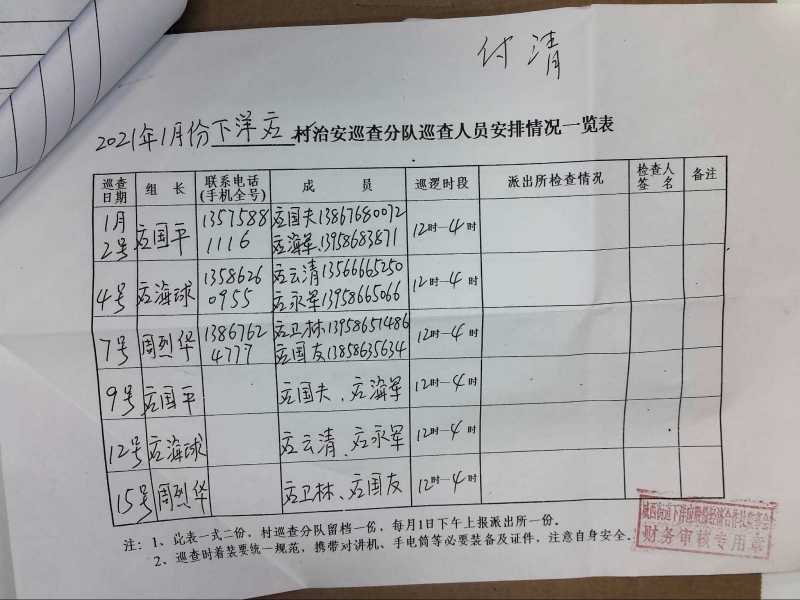 付清
2021年1月份下洋应村治安巡查分队巡查人员安排情况一览表
巡查日期 组长 联系电话(手机全号) 成员 巡逻时段 派出所检查情况 检查人签名 备注
1月2号 应国平 13575881116 应国夫13867680072 应海军13958683871 12时-4时
4号 应海球 13586260955 应云清13566665250 应永军13958665066 12时-4时
7号 周烈华 13867624777 应卫林13958651486 应国友13858635634 12时-4时
9号 应国平 应国夫、应海军 12时-4时
12号 应海球 应云清、应永军 12时-4时
15号 周烈华 应卫林、应国友 12时-4时
注：1、此表一式二份，村巡查分队留档一份，每月1日下午上报派出所一份。
2、巡查时着装要统一规范，携带对讲机、手电筒等必要装备及证件，注意自身安全。
财务审核专用章